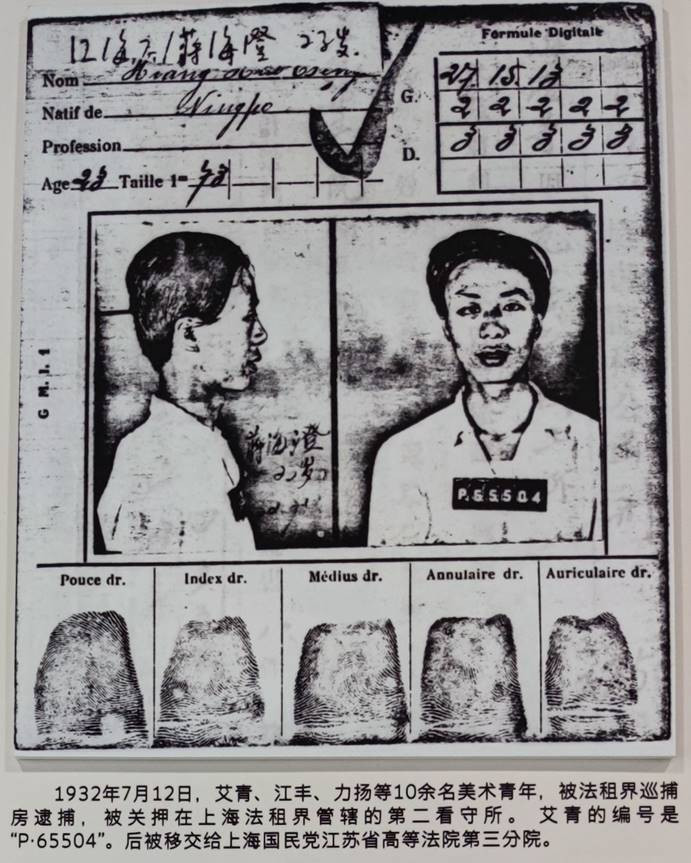 蔣海澄 23岁
Formule Digitale
Nom
Natif de Ningpo
Profession
Age 23 Taille 1m 73
G. 27 15 13
2 2 2 2 2
D. 3 3 3 3 3
G M. J. 1
蒋海澄
P.65504
Pouce dr. Index dr. Médius dr. Annulaire dr. Auriculaire dr.
1932年7月12日，艾青、江丰、力扬等10余名美术青年，被法租界巡捕
房逮捕，被关押在上海法租界管辖的第二看守所。 艾青的编号是
“P·65504”。后被移交给上海国民党江苏省高等法院第三分院。